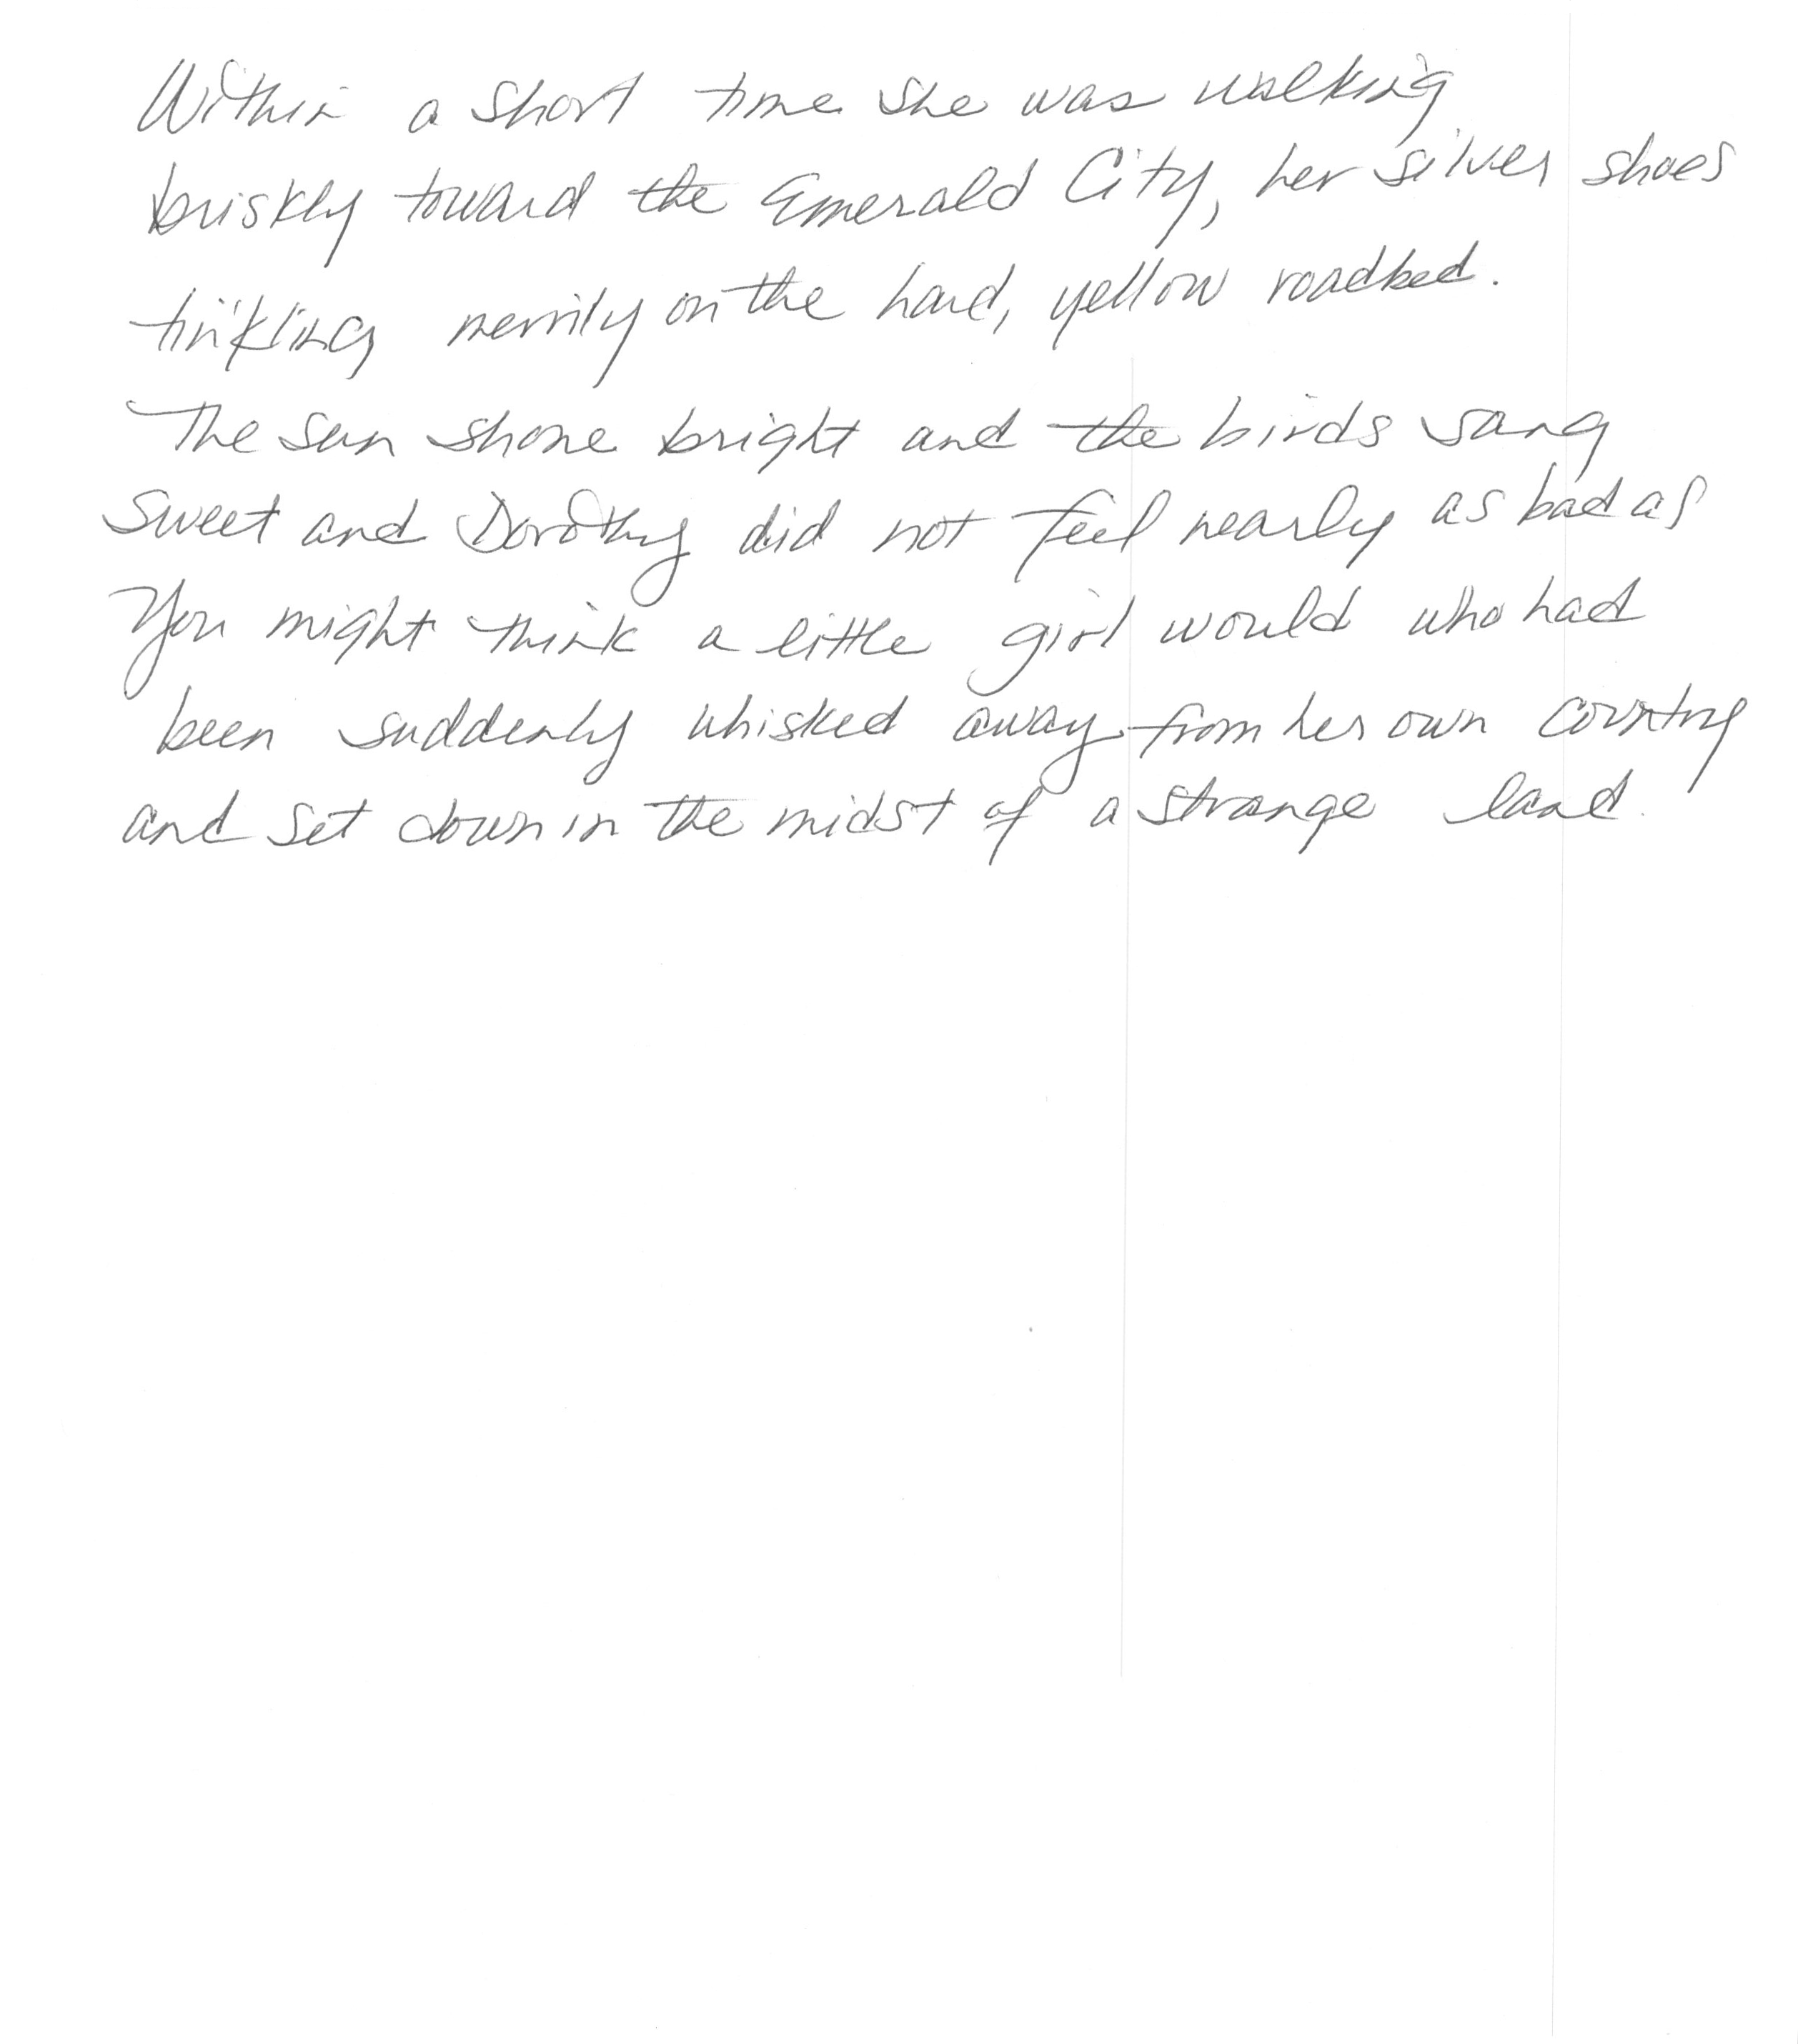 Within a short time she was walking
briskly toward the Emerald City, her silver shoes
tinkling merrily on the hard, yellow roadbed.
The sun shone bright and the birds sang
sweet and Dorothy did not feel nearly as bad as
you might think a little girl would who had
been suddenly whisked away from her own country
and set down in the midst of a strange land.